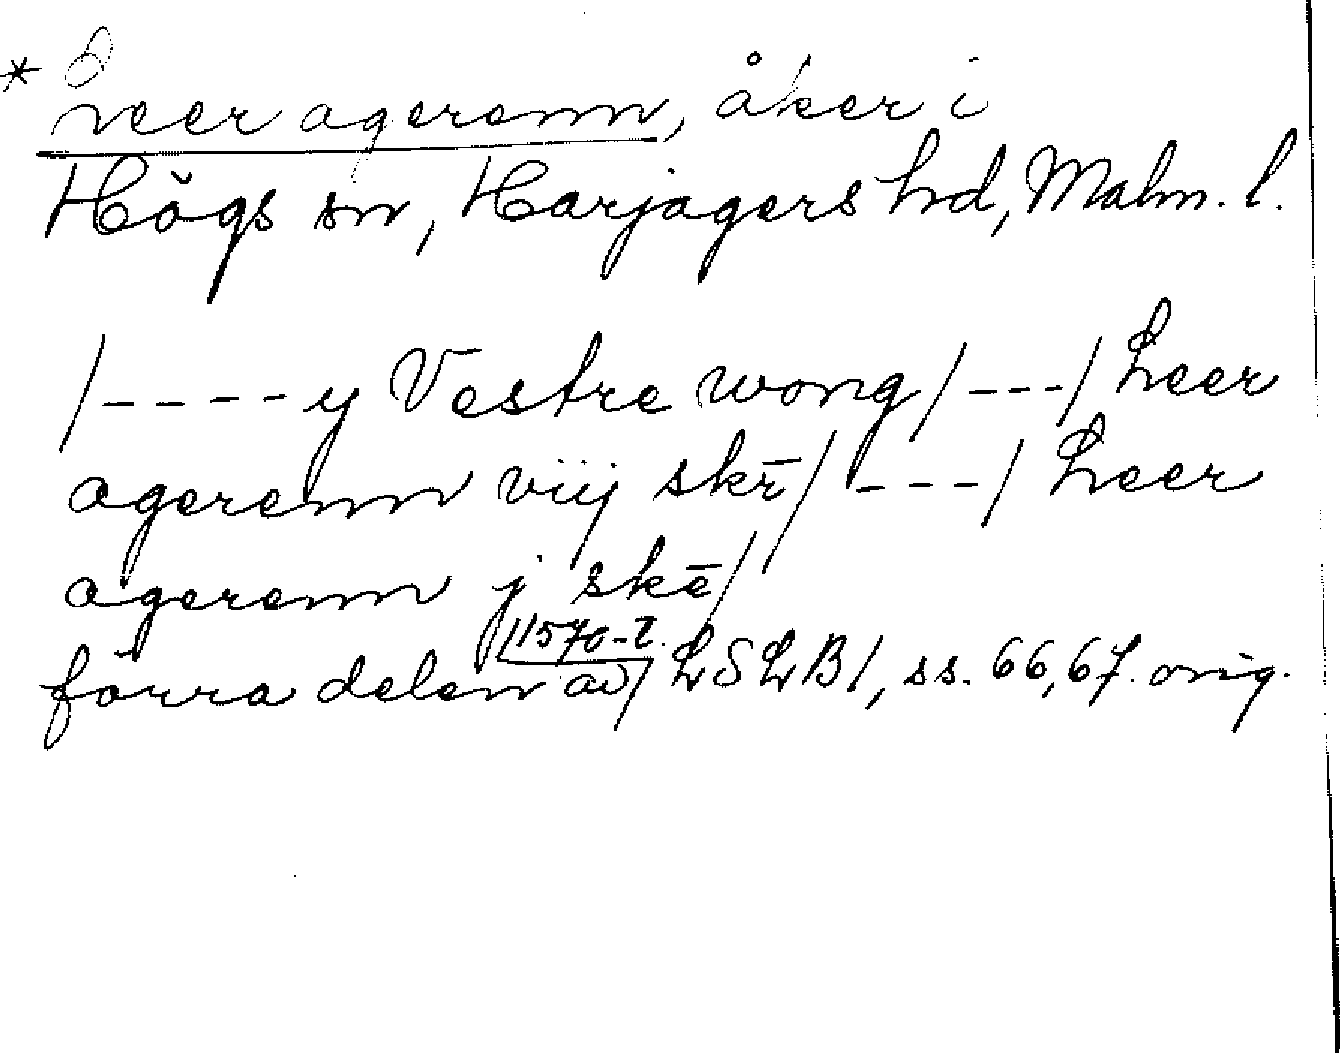 * Leer agerenn, åker i
Högs sn, Harjagers hd, Malm. l.
/----y Vestre wong/---/ Leer
agerenn viij skē/ /---/ Leer
agerenn j skē/
förra delen av 1570-t. / LSLB1, ss. 66, 67. orig.